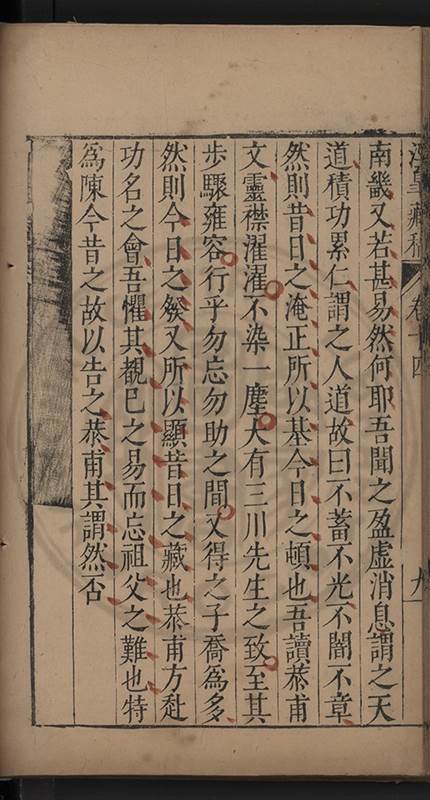 藏稿 卷十四 九
南畿又若甚易然何耶吾聞之盈虛消息謂之天
道積功累仁謂之人道故曰不蓄不光不闇不章
然則昔日之淹正所以基今日之頓也吾讀恭甫
文靈襟濯濯不染一塵大有三川先生之致至其
步驟雍容行乎勿忘勿助之間又得之子喬為多
然則今日之發又所以顯昔日之藏也恭甫方赴
功名之會吾懼其覩已之易而忘祖父之難也特
為陳今昔之故以告之恭甫其謂然否